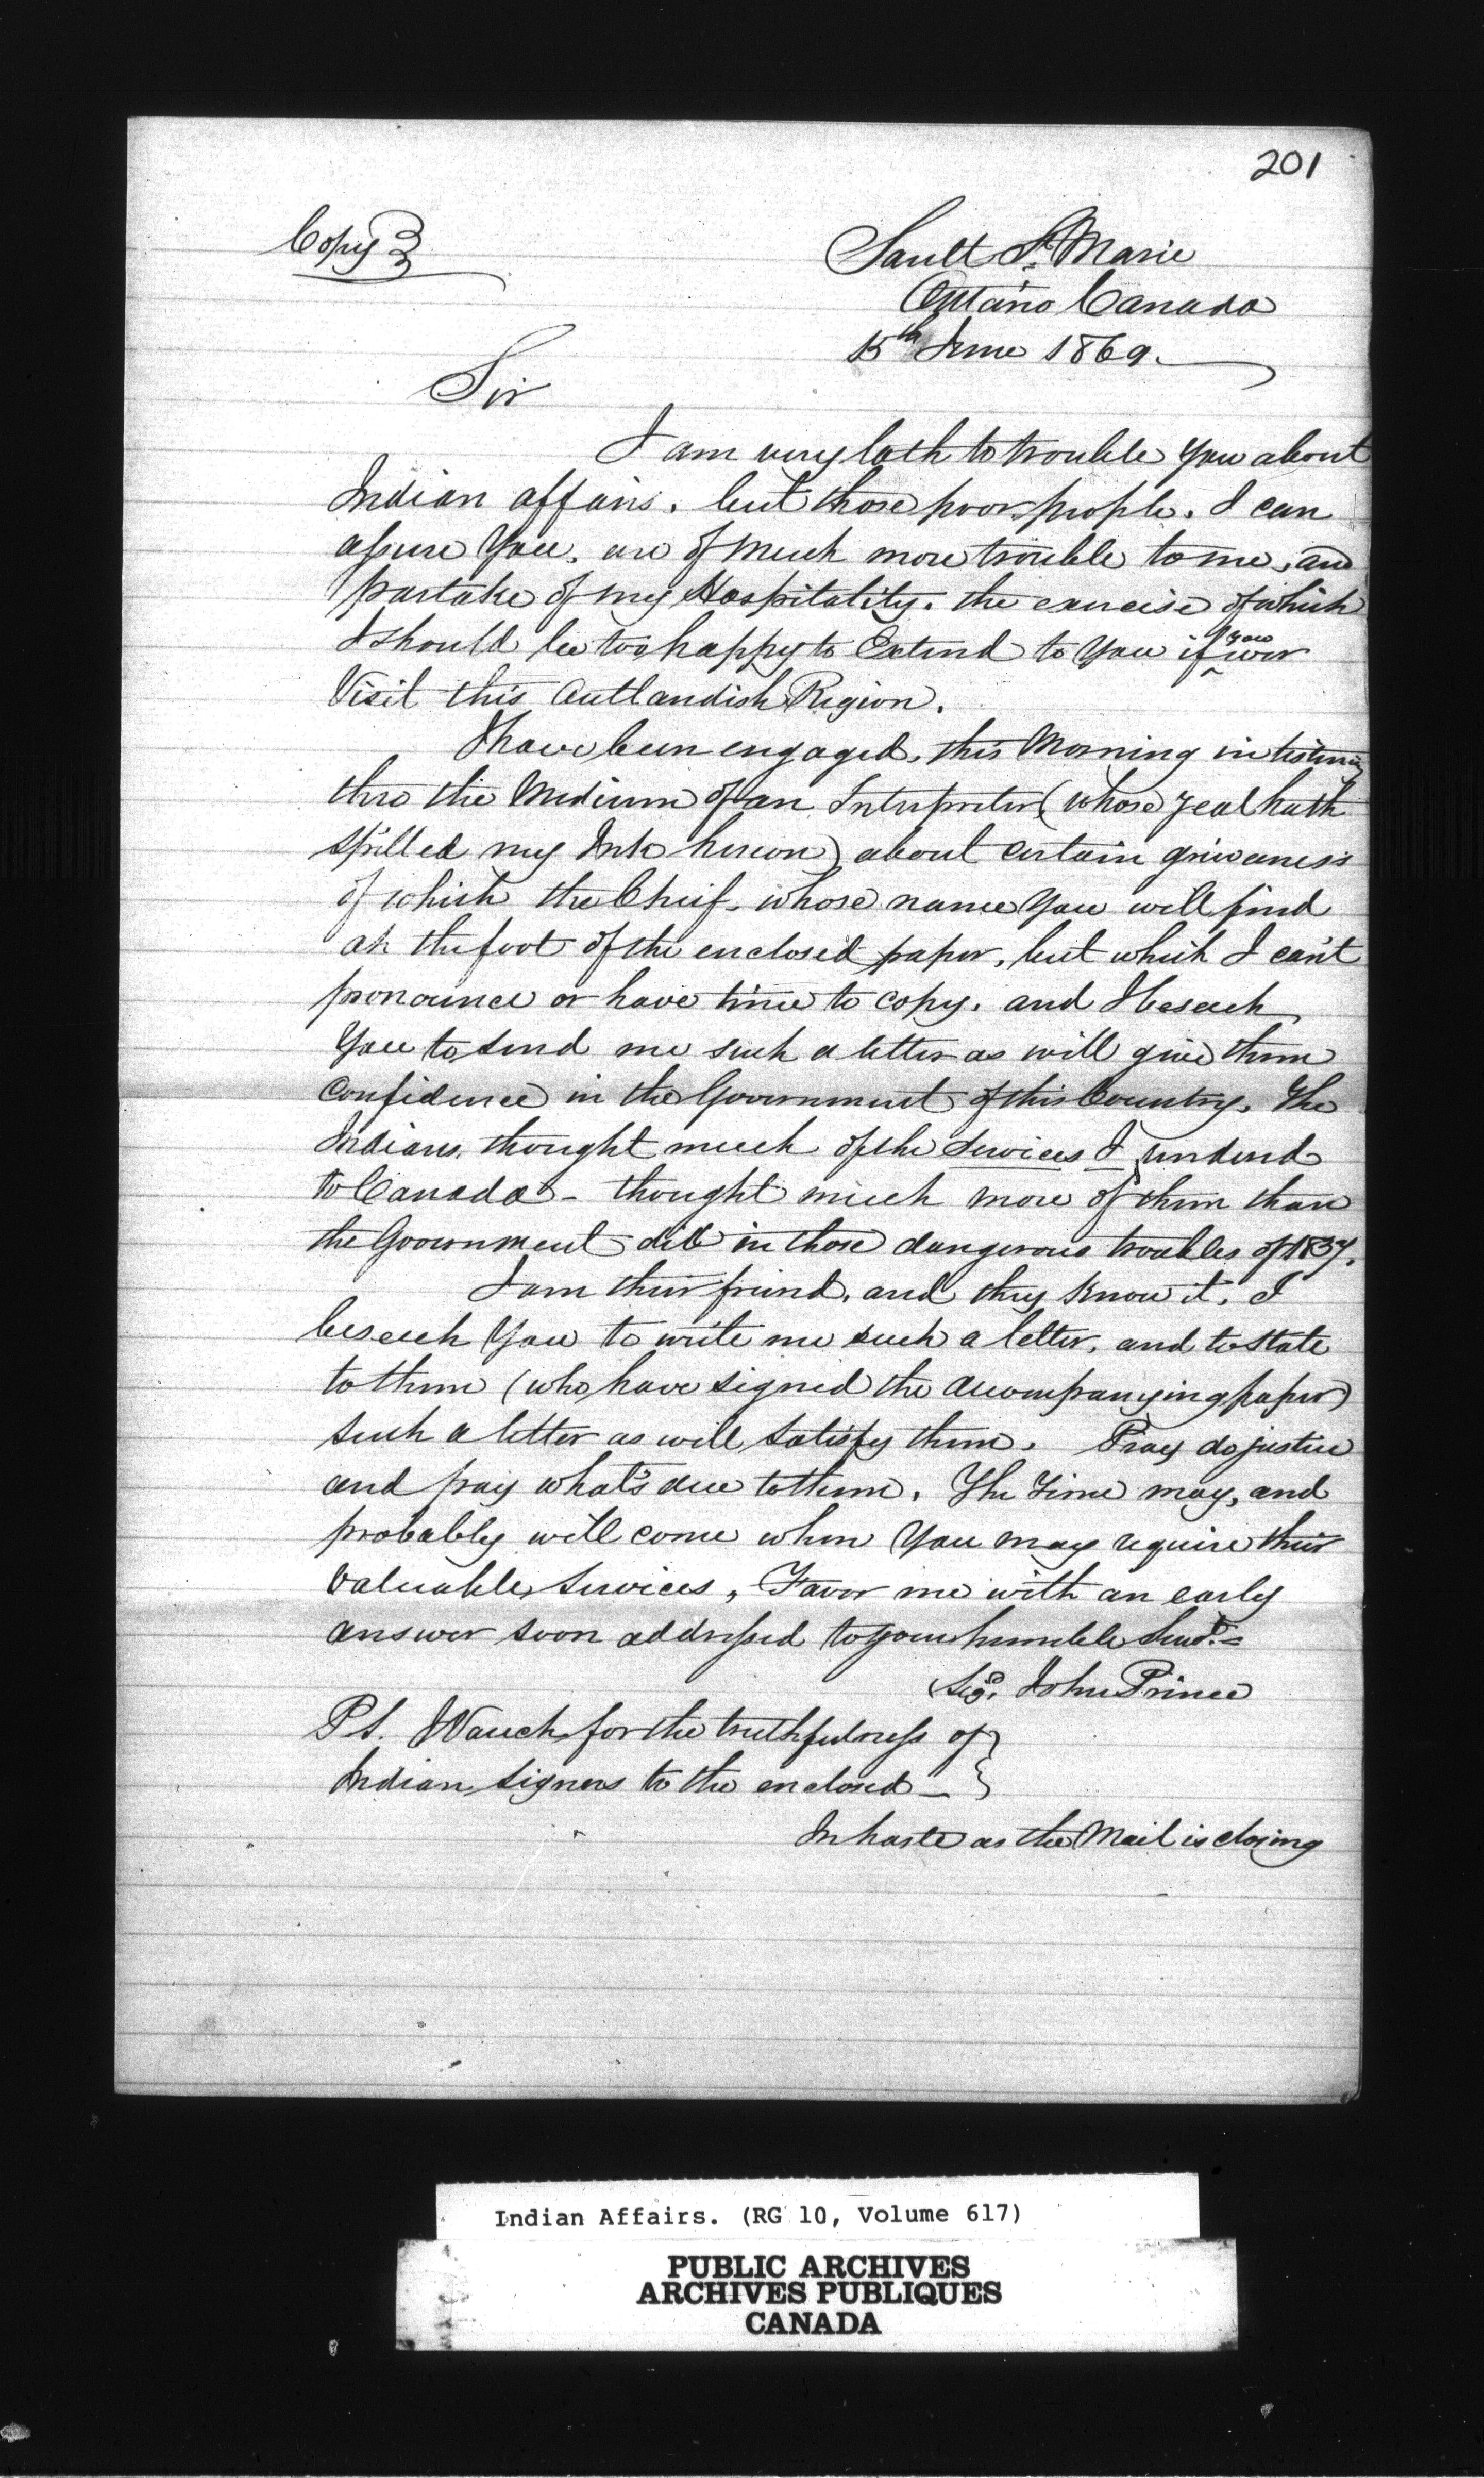 201
Copy
Sault St. Marie
Ontario Canada
15th June 1869.
Sir
I am very loth to trouble You about
Indian affairs. but those poor people. I can
assure You. are of much more trouble to me, and
partake of my Hospitality. the exercise of which
I should be too happy to Extend to You if you ever
Visit this Outlandish Region.
I have been engaged. this Morning in listening
thro the Medium of an Interpreter (whose zeal hath
spilled my Ink hereon) about certain grievances
of which the Chief. whose name You will find
at the foot of the enclosed paper, but which I can't
pronounce or have time to copy. and I beseech
You to send me such a letter as will give them
confidence in the Government of this Country. The
Indians thought much of the services I rendered
to Canada - thought much more of them than
the Government did in those dangerous troubles of 1837.
I am their friend. and they know it. I
beseech You to write me such a letter. and to state
to them (who have signed the accompanying paper)
such a letter as will satisfy them. Pray do justice
and pay what's due to them. The Time may, and
probably will come when You may require their
valuable services, Favor me with an early
answer soon addressed to your humble Servt. =
(Sigd. John Prince
PS. I Vouch for the truthfulness of }
Indian signers to the enclosed — }
In haste as the Mail is closing
Indian Affairs. (RG 10, Volume 617)
PUBLIC ARCHIVES
ARCHIVES PUBLIQUES
CANADA